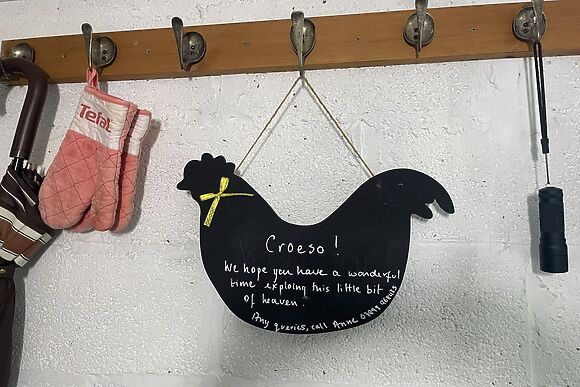 Tefal
Croeso!
We hope you have a wonderful
time exploing this little bit
of heaven.
Any queries, call Anne